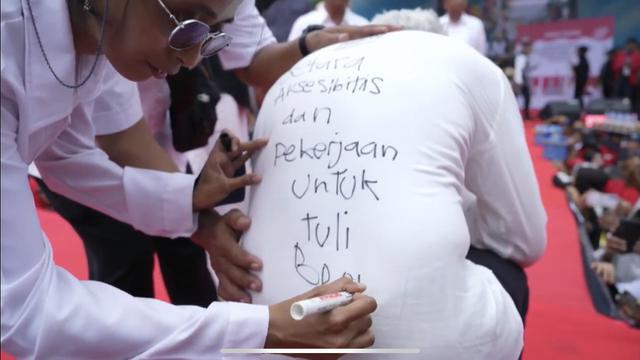 Aksesibitas
dan
pekerjaan
untuk
tuli